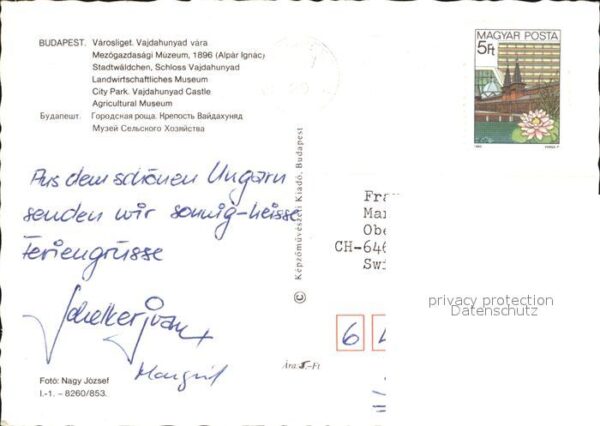 BUDAPEST. Városliget. Vajdahunyad vára
Mezőgazdasági Múzeum, 1896 (Alpár Ignác)
Stadtwäldchen, Schloss Vajdahunyad
Landwirtschaftliches Museum
City Park. Vajdahunyad Castle
Agricultural Museum
Будапешт. Городская роща. Крепость Вайдахуняд
Музей Сельского Хозяйства
MAGYAR POSTA
5Ft
Aus dem schönen Ungarn
senden wir sonnig-heisse
Feriengrüsse
Margrit
© Képzőművészeti Kiadó, Budapest
Fra
Mar
Obe
CH-646
Swi
privacy protection
Datenschutz
6
Ára 5.-Ft
Fotó: Nagy József
I.-1. – 8260/853.